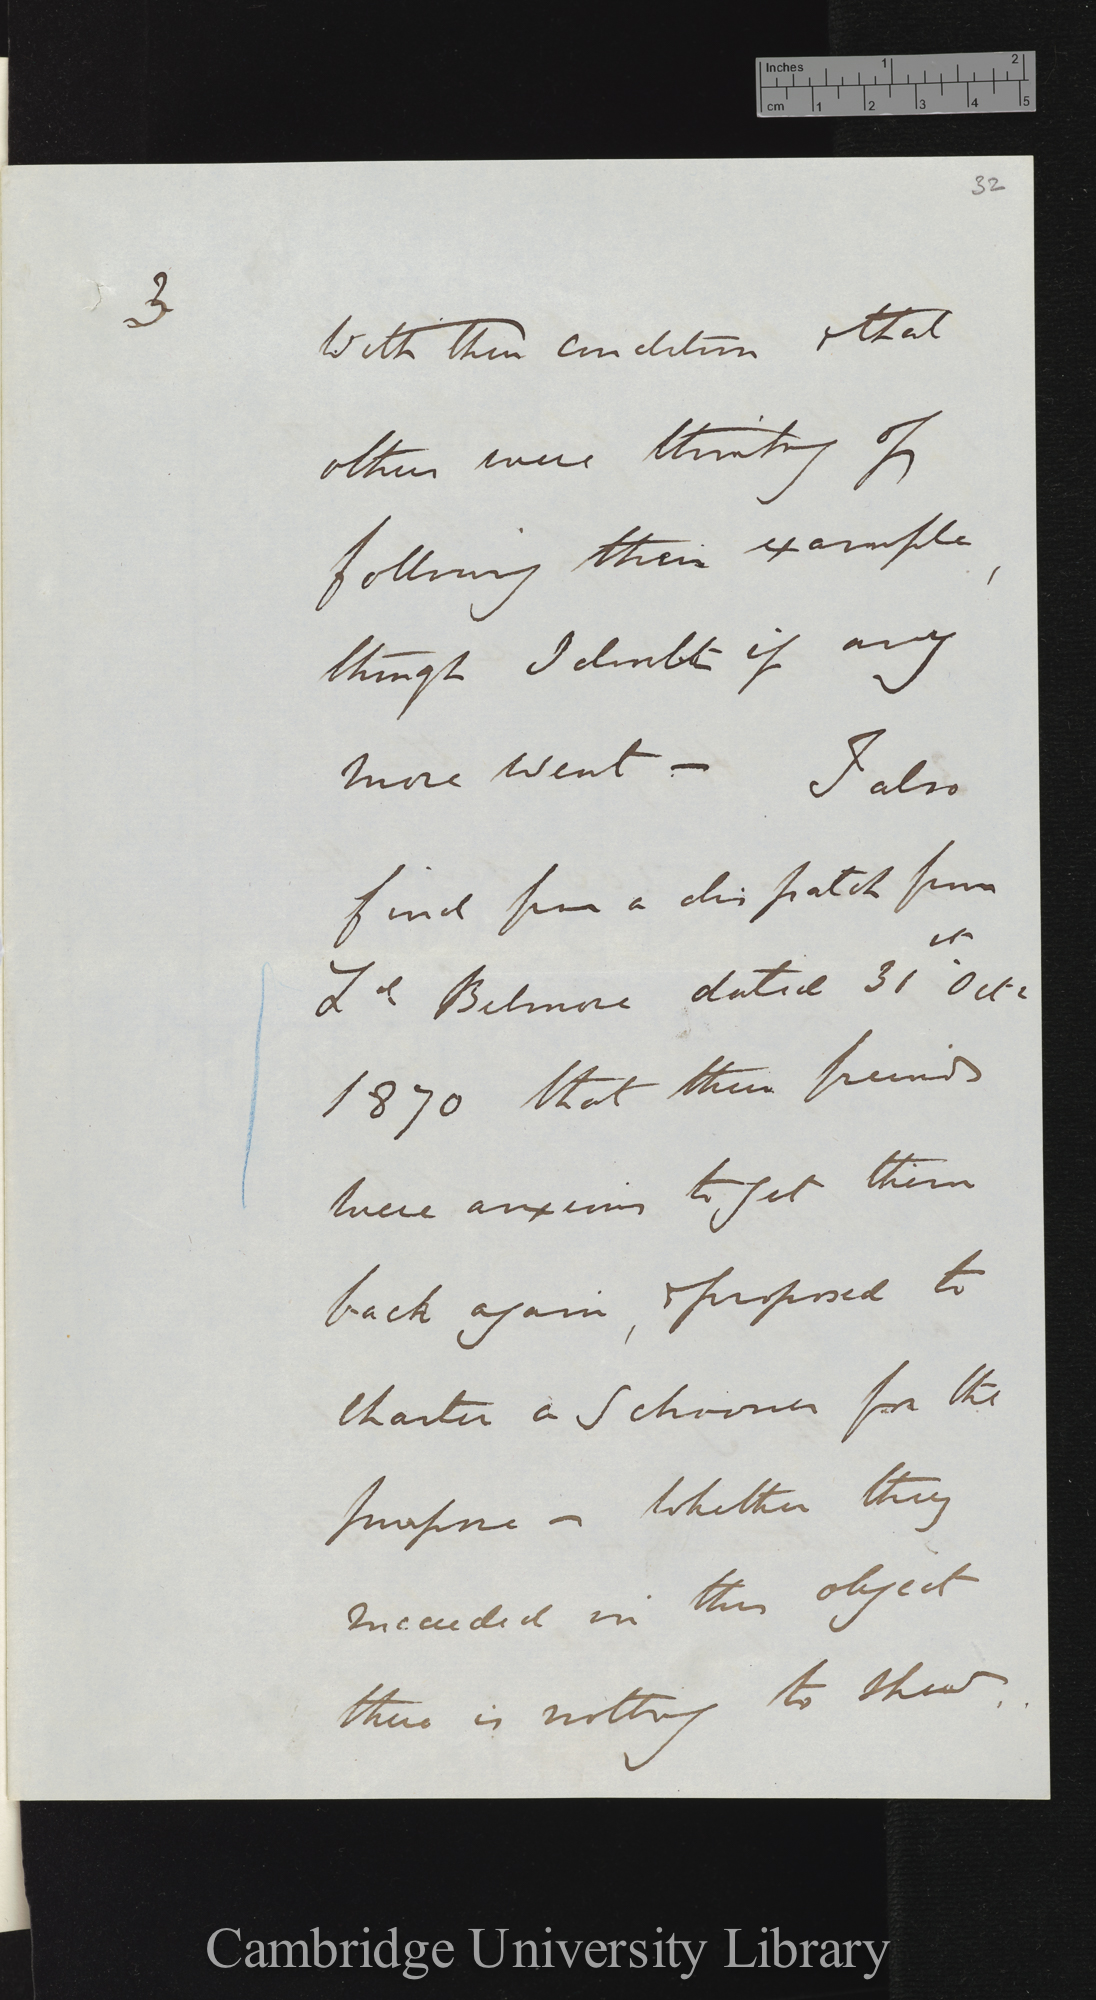 Inches 1 2
cm 1 2 3 4 5
32
3
with their condition & that
others were thinking of
following their example,
though I doubt if any
more went – I also
find from a dispatch from
Ld Belmore dated 31st Octr
1870 that their friends
were anxious to get them
back again, & proposed to
charter a Schooner for the
purpose – Whether they
succeeded in this object
there is nothing to shew.
Cambridge University Library